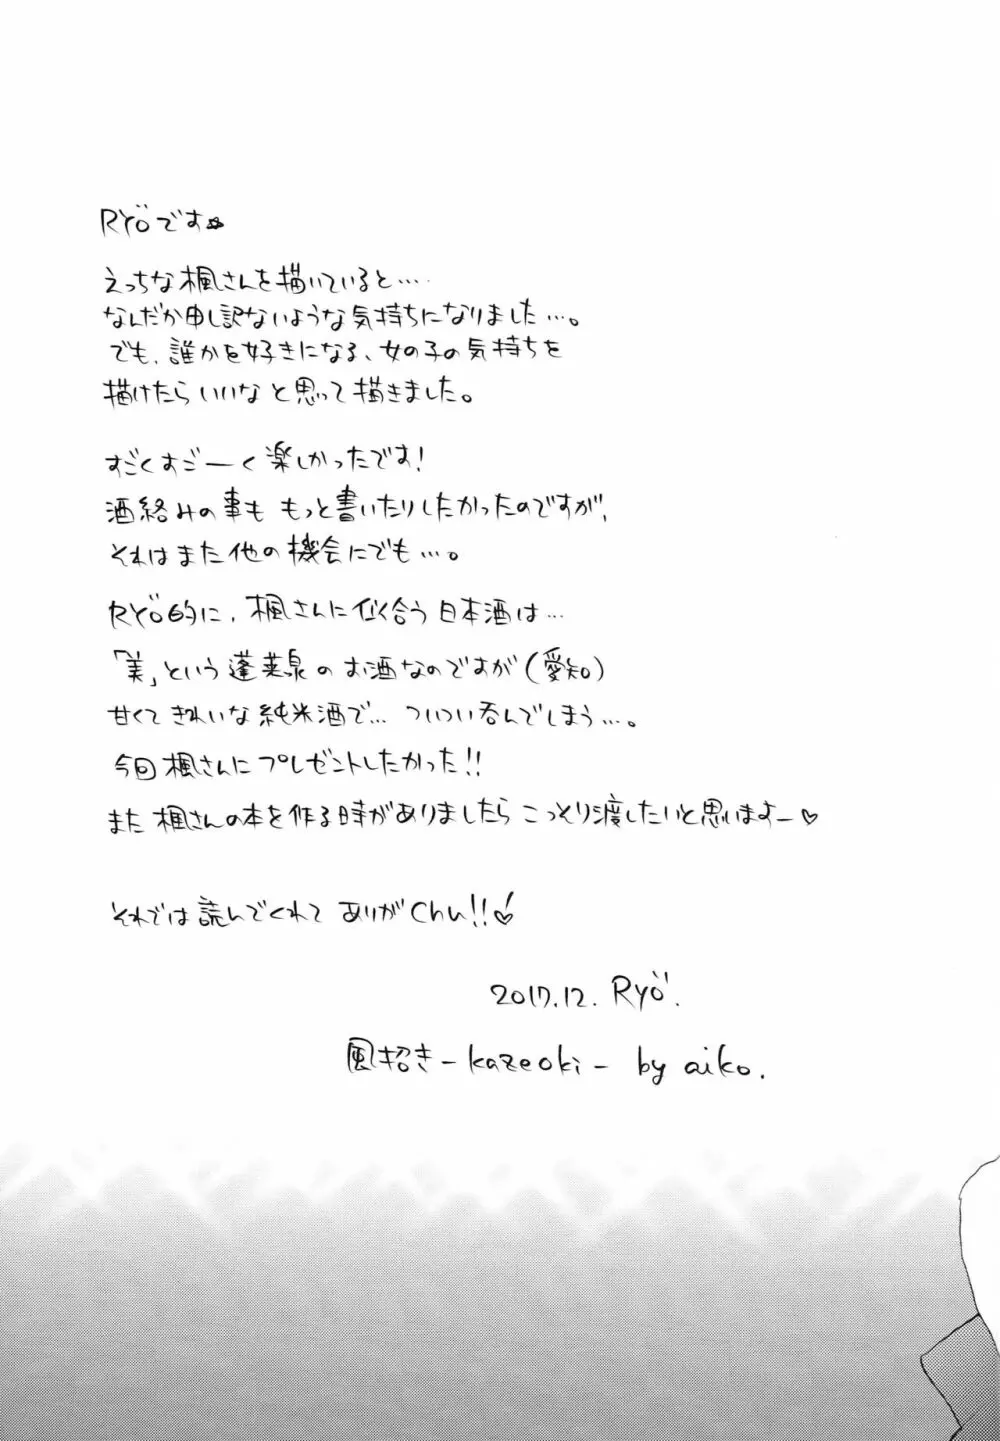 Ryöです☆
えっちな楓さんを描いていると….
なんだか申し訳ないような気持ちになりました…。
でも、誰かを好きになる、女の子の気持ちを
描けたらいいなと思って描きました。
すごくすごーく楽しかったです!
酒絡みの事も もっと書いたりしたかったのですが、
それはまた他の機会にでも…。
Ryö的に、楓さんに似合う日本酒は…
「美」という蓬莱泉のお酒なのですが(愛知)
甘くてきれいな純米酒で… ついつい呑んでしまう…。
今回楓さんにプレゼントしたかった!!
また楓さんの本を作る時がありましたら こっそり渡したいと思いまよー♡
それでは読んでくれて ありがChu!!♡
2017.12. Ryö.
風招き-kazeoki- by aiko.